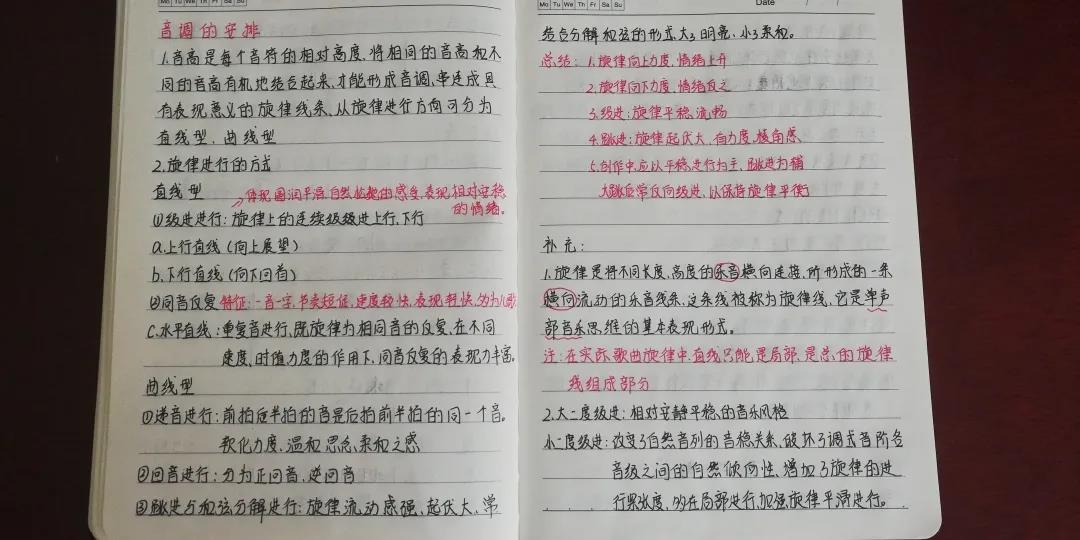 Mo Tu We Th Fr Sa Su
音调的安排
1.音高是每个音符的相对高度,将相同的音高和不
同的音高有机地结合起来,才能形成音调,串连成具
有表现意义的旋律线条,从旋律进行方向可分为
直线型、曲线型
2.旋律进行的方式
直线型 体现圆润平滑,自然松弛的感受,表现相对安稳
的情绪。
①级进进行:旋律上的连续级级进上行、下行
a.上行直线(向上展望)
b.下行直线(向下回首)
②同音反复 特征:一音一字,节奏短促,速度较快,表现轻快,多为儿歌
C.水平直线:重复音进行,既旋律为相同音的反复,在不同
速度,时值力度的作用下,同音反复的表现力丰富。
曲线型
①递音进行:前拍后半拍的音是后拍前半拍的同一个音。
软化力度、温和思念、柔和之感
②回音进行:分为正回音、逆回音
③跳进与和弦分解进行:旋律流动感强、起伏大,常
Mo Tu We Th Fr Sa Su
Date / /
结合分解和弦的形式,大3明亮、小3柔和。
总结:1.旋律向上力度,情绪上升
2.旋律向下力度,情绪反之
3.级进:旋律平稳,流畅
4.跳进:旋律起伏大、有力度,棱角感
5.创作中应以平稳进行为主,跳进为辅
大跳后常反向级进,以保持旋律平衡
补充:
1.旋律是将不同长度、高度的乐音横向连接,所形成的一条
横向流动的乐音线条,这条线被称为旋律线,它是单声
部音乐思维的基本表现形式。
注:在实际歌曲旋律中,直线只能是局部,是总的旋律
线组成部分
2.大二度级进:相对安静平稳的音乐风格
小二度级进:改变了自然音列的音稳关系,破坏了调式音阶各
音级之间的自然倾向性,增加了旋律的进
行紧张度,多在局部进行,加强旋律平滑进行。